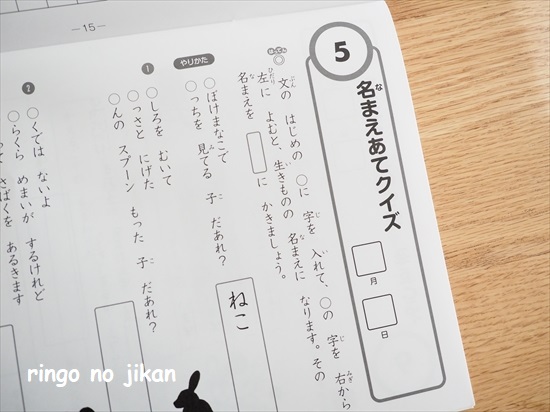 —15—
5
名まえあてクイズ
月
日
文の はじめの ○に 字を 入れて、○の 字を 右から
左に よむと、生きものの 名まえに なります。その
名まえを □に かきましょう。
やりかた
○ぼけまなこで
○っちを 見てる 子 だあれ?
ねこ
1
○しろを むいて
○っさと にげた
○んの スプーン もった 子 だあれ?
2
○くでは ないよ
○らくら めまいが するけれど
さばくを あるきます
ringo no jikan